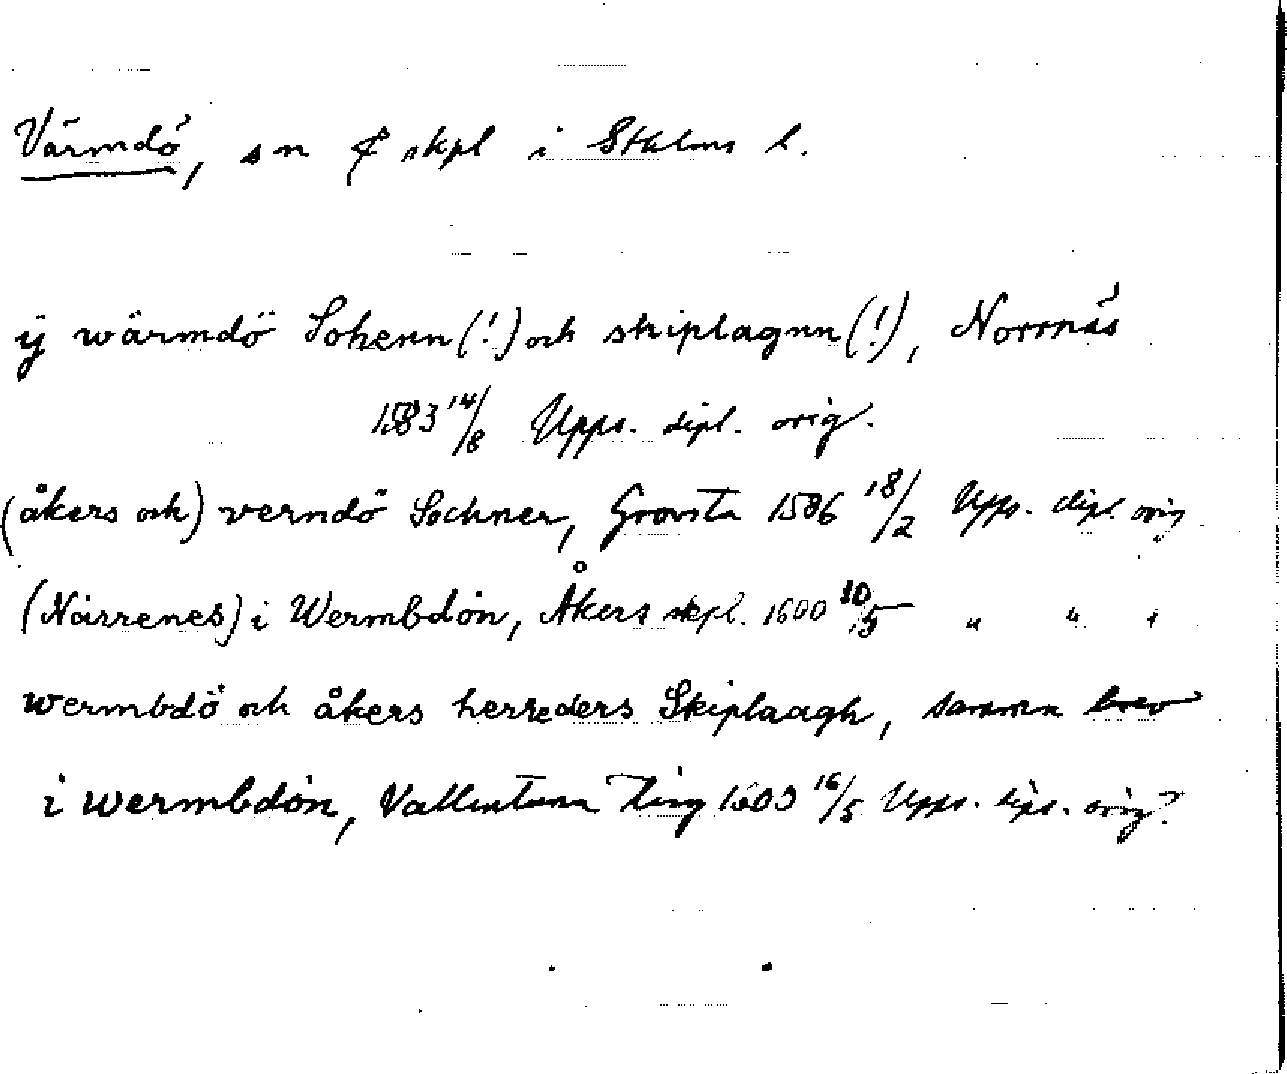 Värmdö, sn & skpl i Sthlms l.
ij wärmdö Sohenn (!) och skiplagnn (!), Norrnäs
1583 14/8 Upps. dipl. orig.
(åkers och) verndö Sochner, Grovsta 1586 18/2 Upps. dipl. orig
(Närrenes) i Wermbdön, Åkers skpl. 1600 10/5 " " "
wermbdö och åkers herreders Skiplaagh, samma brev
i wermbdön, Vallentuna ting 1603 16/5 Upps. dipl. orig.